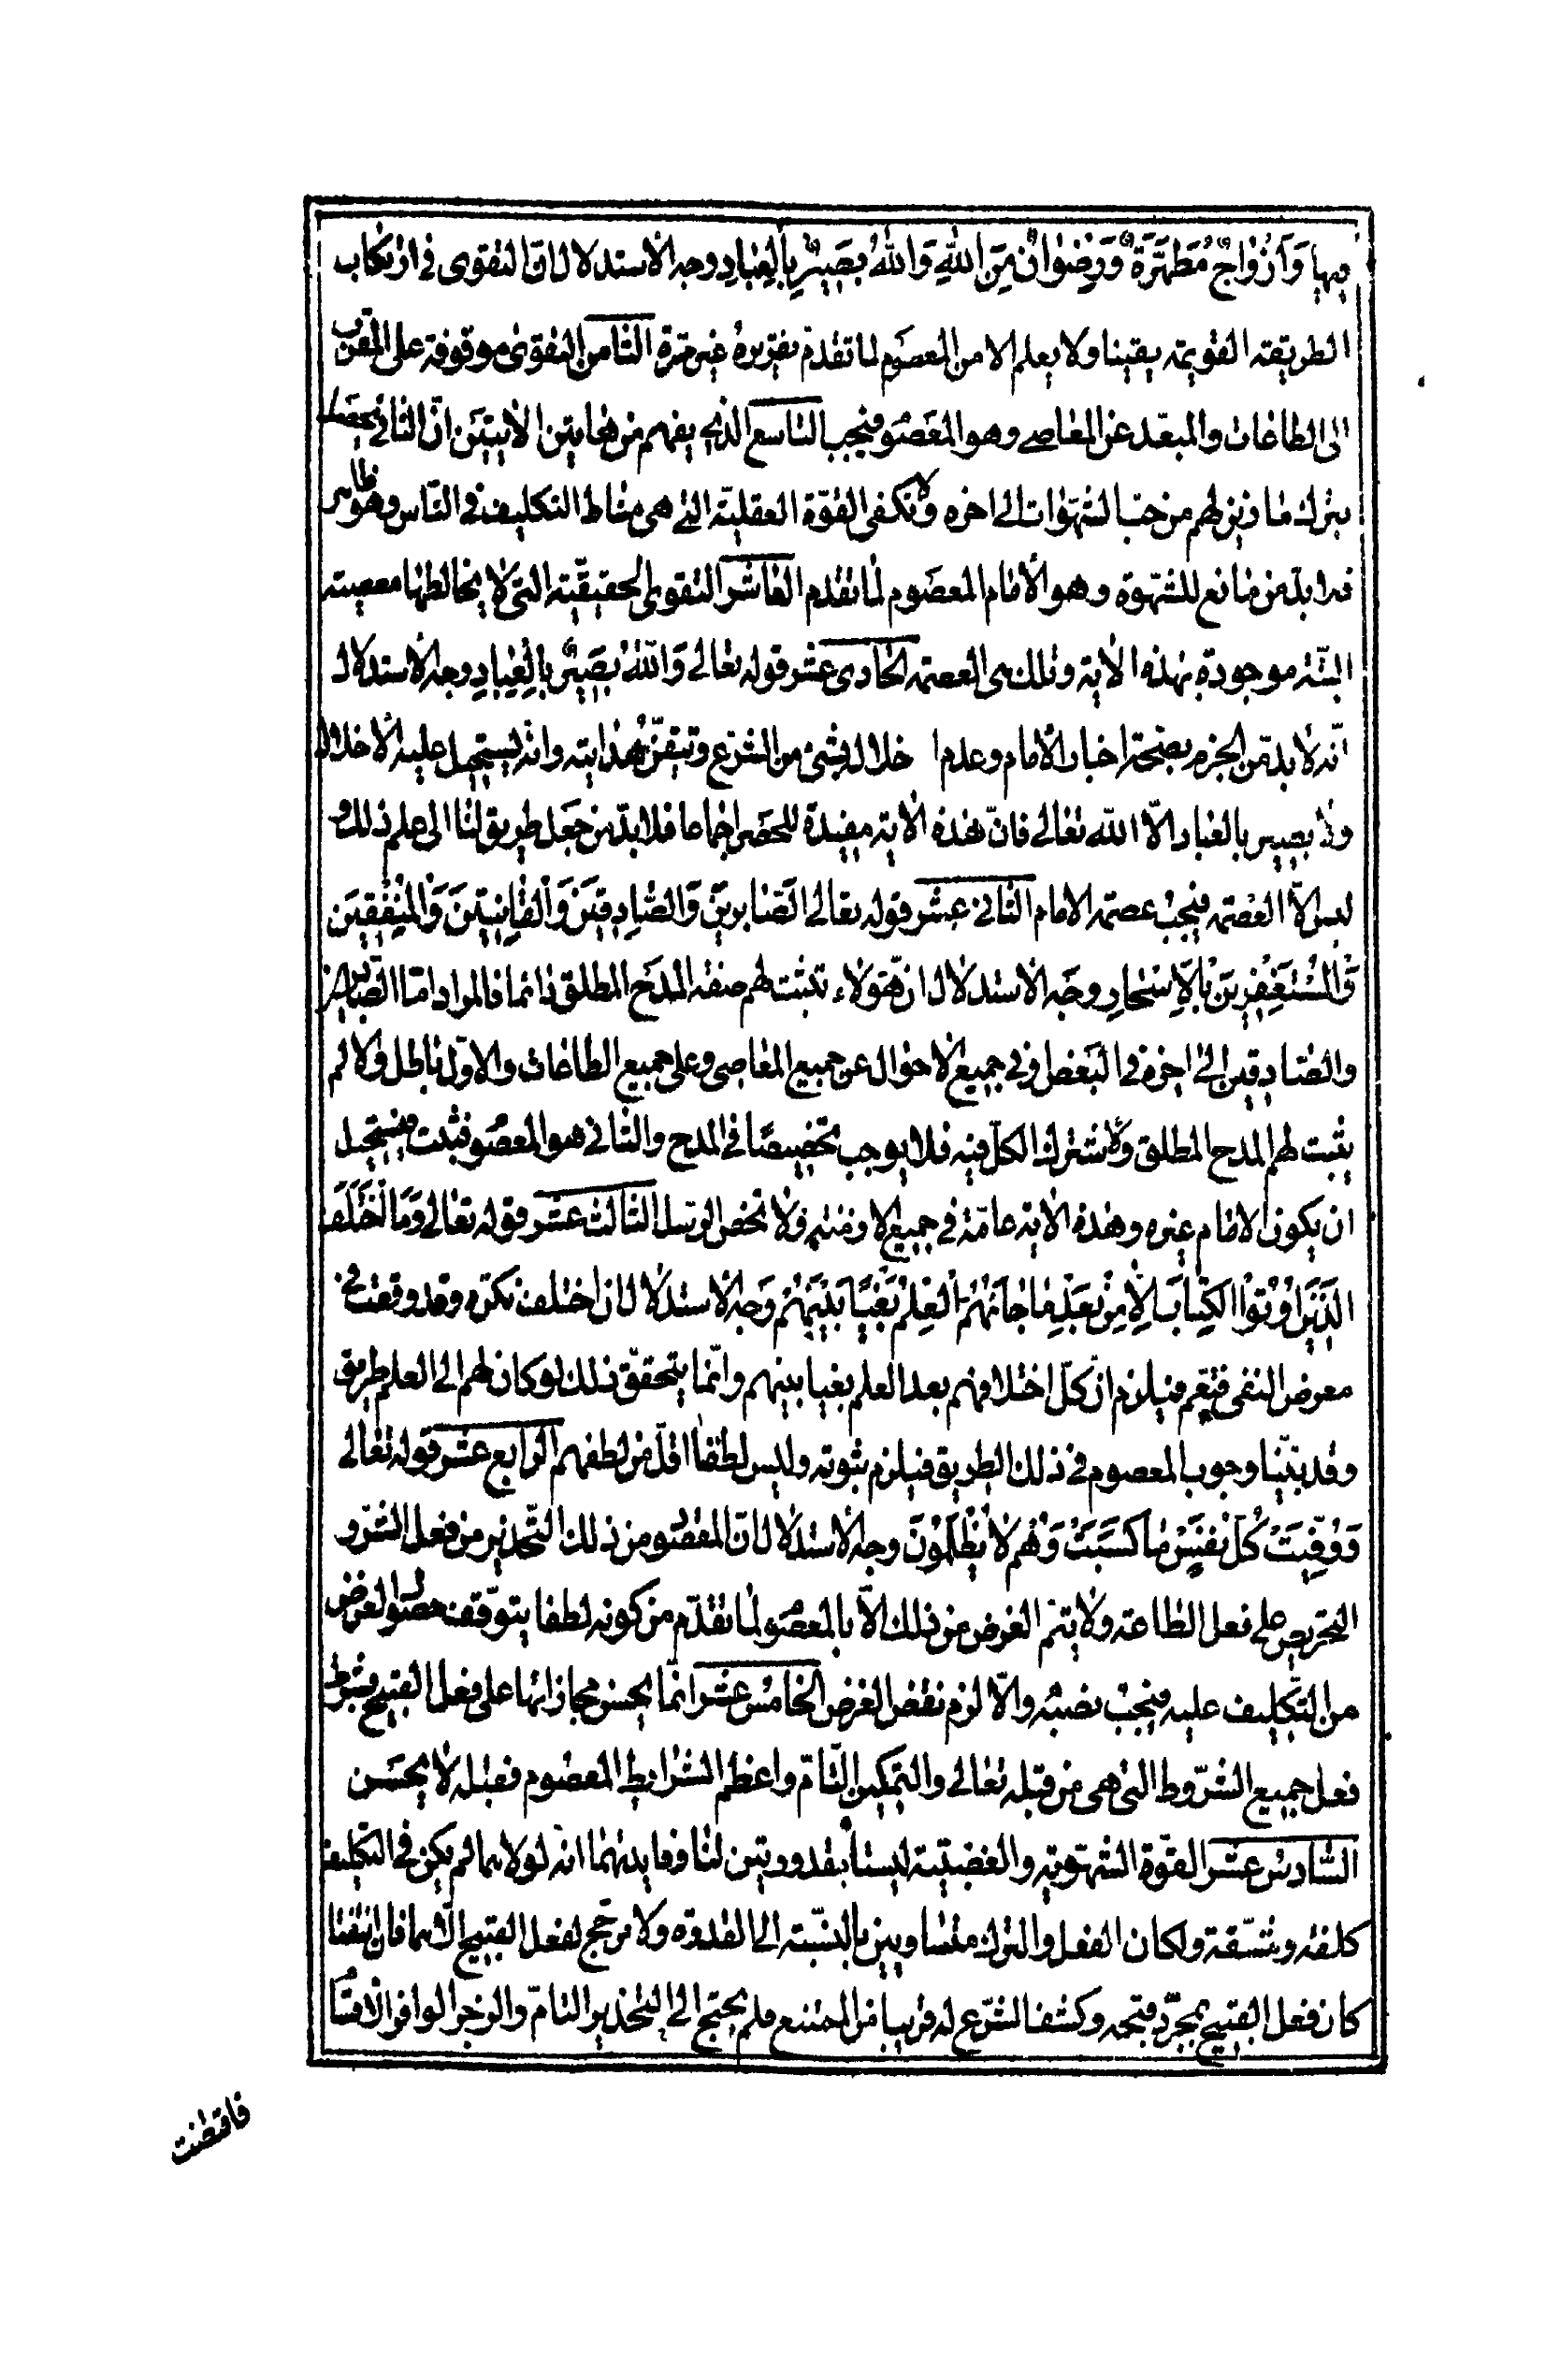 فيها وَأَزْوَاجٌ مُطَهَّرَةٌ وَرِضْوَانٌ مِنَ اللَّهِ وَاللَّهُ بَصِيرٌ بِالْعِبَادِ وجه الاستدلال انّ التقوى في ارتكاب
الطريقة القويمة يقينا ولا يعلم الا من المعصوم لما تقدّم تقريره غير مرّة الثامن التقوى موقوفة على المقرّب
الى الطاعات والمبعّد عن المعاصي وهو المعصوم فيجب التاسع الذي يفهم من هاتين الآيتين انّ الثاني يحصل
بترك ما زيّن لهم من حبّ الشهوات الى اخره ولا تكفى القوّة العقلية التي هي مناط التكليف في الناس وهو ظاهر
فلا بدّ من مانع للشهوة وهو الامام المعصوم لما تقدم العاشر التقوى الحقيقية التي لا يخالطها معصية
البتّة موجودة بهذه الآية وتلك هي العصمة الحادى عشر قوله تعالى وَاللَّهُ بَصِيرٌ بِالْعِبَادِ وجه الاستدلال
انّه لا بدّ من الجزم بصحّة اخبار الامام وعدم ا خلال بشئ من الشرع وتيقّن هدايته وانّه يستحيل عليه الاخلال
ولا بصير بالعباد الّا اللّه تعالى فانّ هذه الآية مفيدة للحصر اجماعا فلا بدّ من جعل طريق لنا الى علم ذلك و
ليس الّا العصمة فيجب عصمة الامام الثاني عشر قوله تعالى الصَّابِرِينَ وَالصَّادِقِينَ وَالْقَانِتِينَ وَالْمُنْفِقِينَ
وَالْمُسْتَغْفِرِينَ بِالْأَسْحَارِ وجه الاستدلال انّ هؤلاء تثبت لهم صفة المدح المطلق دائما فالمراد امّا الصابرين
والصّادقين الى اخره في البعض او في جميع الاحوال عن جميع المعاصي وعلى جميع الطاعات والاوّل باطل والّا لم
يثبت لهم المدح المطلق ولاشتراك الكلّ فيه فلا يوجب تخصيصًا في المدح والثاني هو المعصوم فثبت فيستحيل
ان يكون الامام غيره وهذه الآية عامّة في جميع الازمنة ولا تخصّ الرسل الثالث عشر قوله تعالى وَمَا اخْتَلَفَ
الَّذِينَ أُوتُوا الْكِتَابَ إِلَّا مِنْ بَعْدِ مَا جَاءَهُمُ الْعِلْمُ بَغْيًا بَيْنَهُمْ وجه الاستدلال انّ اختلف نكرة وقد وقعت في
معرض النفى فتعم فيلزم انّ كلّ اختلافهم بعد العلم بغيا بينهم وانّما يتحقّق ذلك لو كان لهم الى العلم طريق
وقد بيّنّا وجوب المعصوم في ذلك الطريق فيلزم ثبوته وليس لطفنا اقلّ من لطفهم الرابع عشر قوله تعالى
وَوُفِّيَتْ كُلُّ نَفْسٍ مَا كَسَبَتْ وَهُمْ لَا يُظْلَمُونَ وجه الاستدلال انّ المقصود من ذلك التّحذير من فعل الشرّ و
التحريص على فعل الطاعة ولا يتمّ الغرض من ذلك الّا بالمعصوم لما تقدّم من كونه لطفا يتوقّف حصول الغرض
من التكليف عليه فيجب نصبه والّا لزم نقض الغرض الخامس عشر انّما يحسن مجازاتها على فعل القبيح بشرط
فعل جميع الشّروط التي هي من قبله تعالى والتمكين التّامّ واعظم الشرايط المعصوم فقبله لا يحسن
السّادس عشر القوّة الشهويّة والغضبيّة ليستا بقدوريتين لنا وفايدتهما انّه لولاهما لم يكن في التّكليف
كلفة ومشقّة ولكان الفعل والترك متساويين بالنّسبة الى القدرة ولا مرجّح لفعل القبيح الّا هما فان انتفتا
كان فعل القبيح بمجرّد قبحه وكشف الشّرع له قريبا من الممتنع فلم يحتج الى التحذير التامّ والزجر الوافر الاقسام
فاقتضت